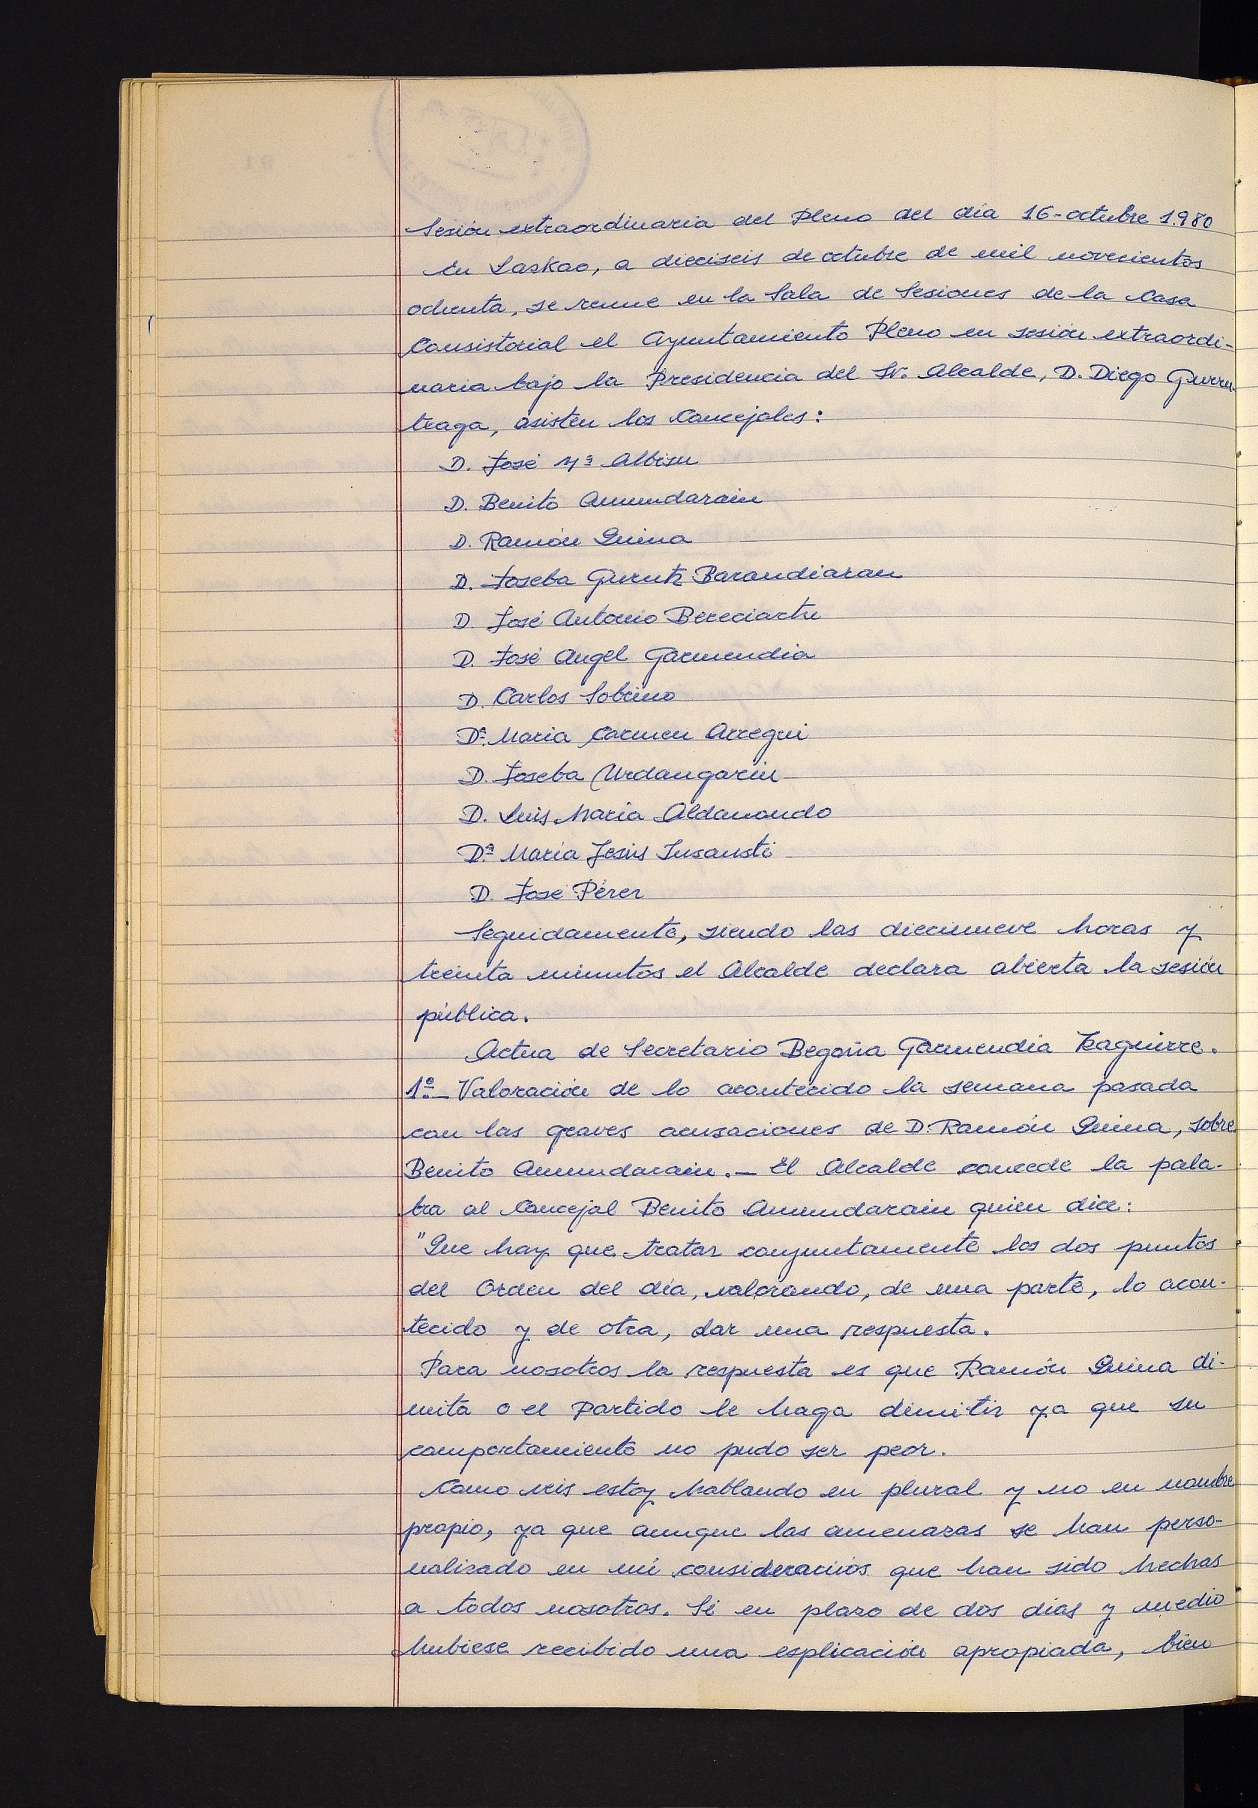 Sesión extraordinaria del Pleno del día 16-octubre 1.980
En Laskao, a dieciseis de octubre de mil novecientos
ochenta, se reune en la Sala de Sesiones de la Casa
Consistorial el Ayuntamiento Pleno en sesión extraordi-
naria bajo la Presidencia del Sr. Alcalde, D. Diego Gurru-
teaga, asisten los Concejales:
D. José Mª Albisu
D. Benito Amundarain
D. Ramón Quina
D. Joseba Gurutz Barandiaran
D. José Antonio Bereciartu
D. José Angel Garmendia
D. Carlos Sobrino
Dª. Maria Carmen Arregui
D. Joseba Urdangarin
D. Luis Maria Aldanondo
Dª Maria Jesús Insausti
D. Jose Pérez
Seguidamente, siendo las diecinueve horas y
treinta minutos el Alcalde declara abierta la sesión
pública.
Actua de Secretario Begoña Garmendia Izaguirre.
1º- Valoración de lo acontecido la semana pasada
con las graves acusaciones de D. Ramón Quina, sobre
Benito Amundarain.- El Alcalde concede la pala-
bra al Concejal Benito Amundarain quien dice:
"Que hay que tratar conjuntamente los dos puntos
del Orden del día, valorando, de una parte, lo acon-
tecido y de otra, dar una respuesta.
Para nosotros la respuesta es que Ramón Quina di-
mita o el Partido le haga dimitir ya que su
comportamiento no pudo ser peor.
Como veis estoy hablando en plural y no en nombre
propio, ya que aunque las amenazas se han perso-
nalizado en mí consideramos que han sido hechas
a todos nosotros. Si en plazo de dos días y medio
hubiese recibido una esplicación apropiada, bien